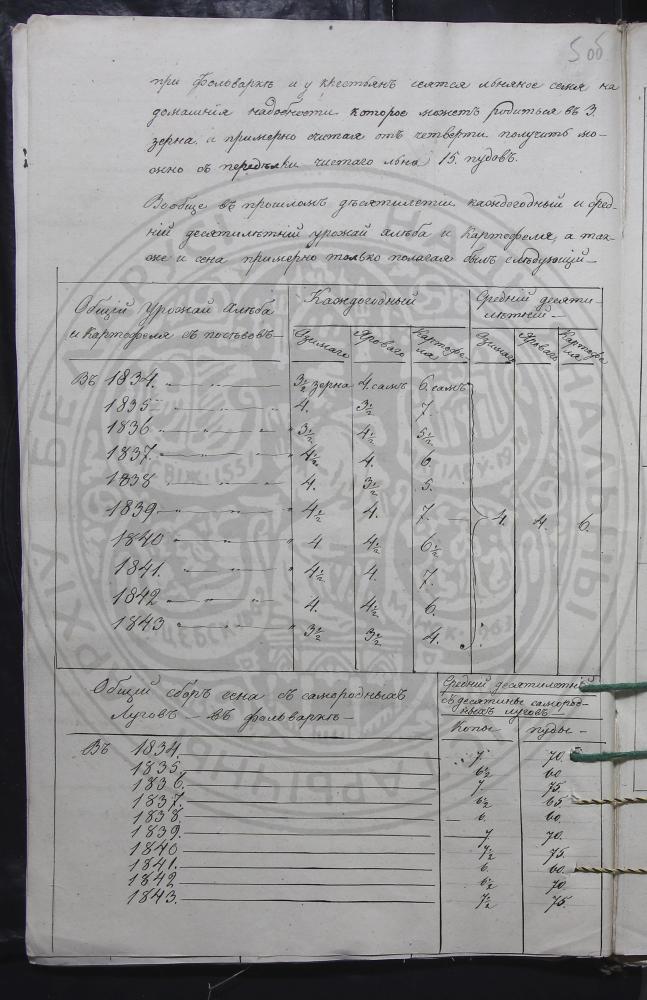 5 об
при Фольваркѣ и у крестьянъ сеятся льняное семя на
домашнія надобности которое можетъ родиться въ 3.
зерна. и примерно считая отъ четверти получить мо-
жно съ передѣлки чистаго льна 15. пудовъ.
Вообще въ прошломъ десятилетіи каждогодный и сред-
ній десятилѣтній урожай хлѣба и картофеля, а так-
же и сена примерно только полагая былъ слѣдующій —
Общій Урожай хлѣба Каждогодный Средній десяти-
и картофеля съ посѣвовъ — лѣтній —
Озимаго Яроваго Картофеля Озимаго Яроваго Картофеля
Въ 1834. 3½ зерна 4. самъ 6. самъ
1835 4. 3½ 7.
1836 3½ 4½ 5½
1837 4½ 4. 6.
1838 4. 3½ 5.
1839 4½ 4. 7. 4. 4. 6.
1840 4 4½ 6½
1841. 4½ 4. 7.
1842 4. 4½ 6.
1843 3½ 3½ 4.
Общій сборъ сена съ самородныхъ Средній десятилетній
луговъ — въ фольваркѣ — съ десятины самород-
ныхъ луговъ
Копы пуды —
Въ 1834. 7. 70.
1835. 6½ 60
1836. 7. 75.
1837. 6½ 65
1838. 6. 60.
1839. 7 70.
1840 7½ 75.
1841. 6. 60.
1842 6½ 70.
1843. 7½ 75.